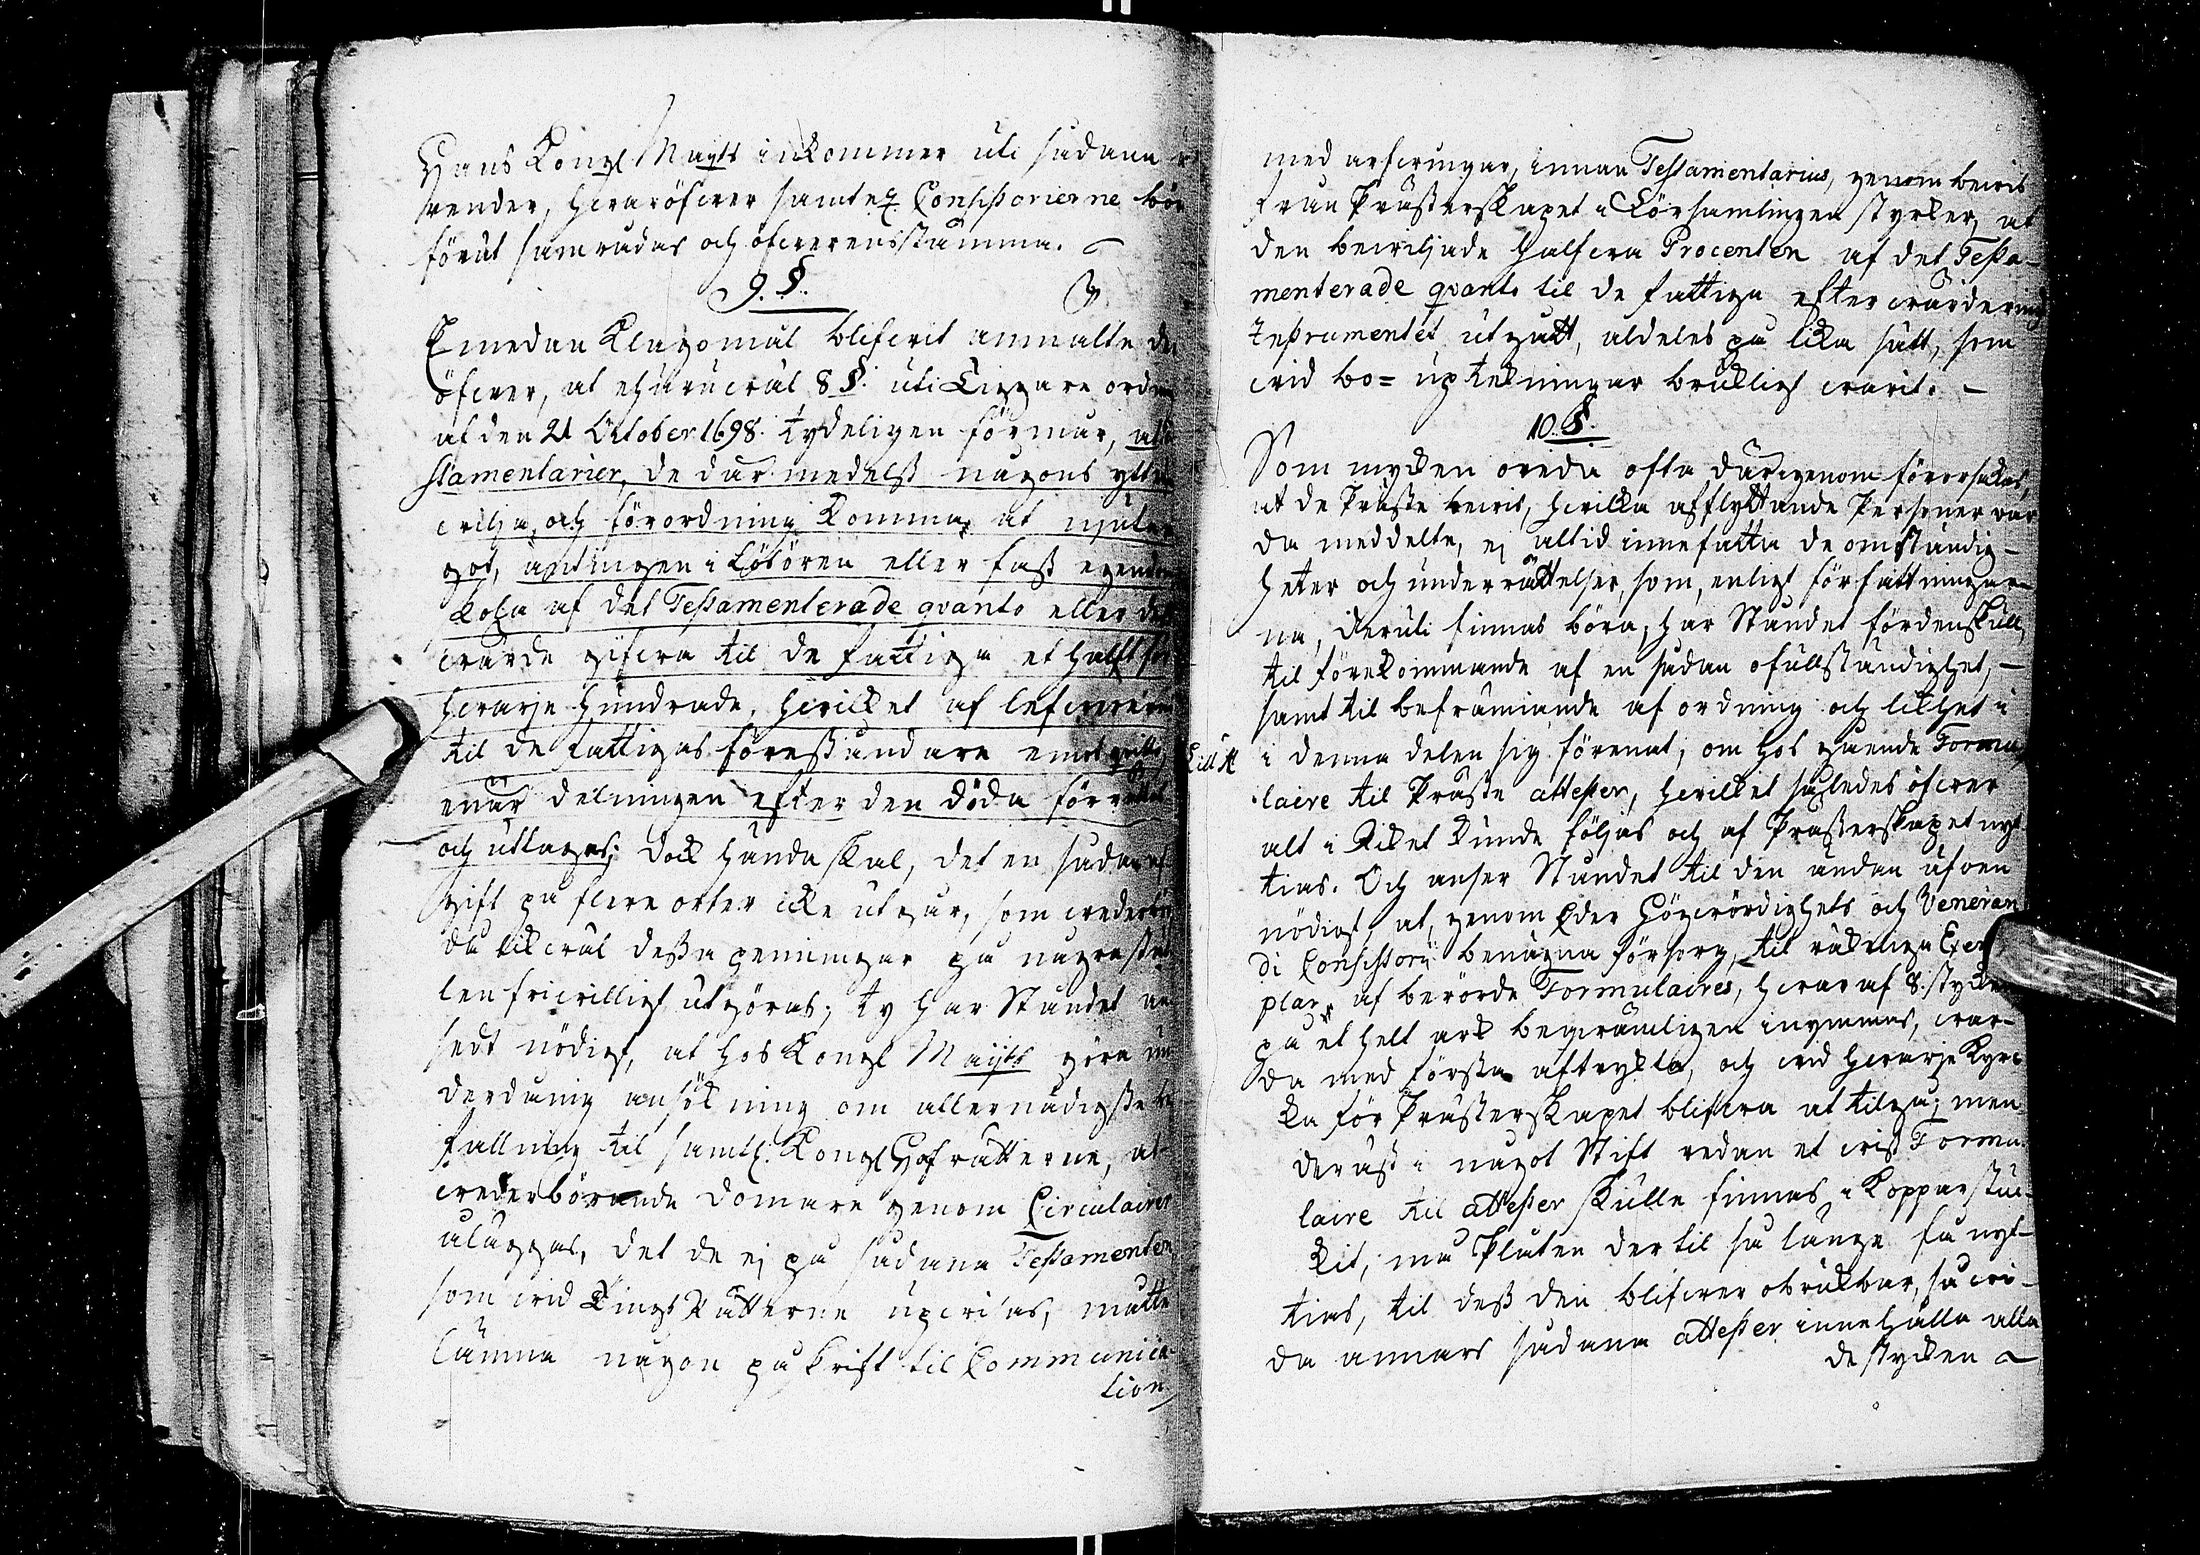 Hans Kongl Mayts inkommer uti sådana
ender, hvaröfver samtel. Consistorierne bör
förut samrådas och öfverensstämma.
9. §.
Emedan Klagomål blifvit anmälte der
öfver, at ehuruväl 8 §. uti Tiggare ordn
af den 21 October 1698. tydeligen förmår, at
stamentarier, de där medelst någons ytt
vilja och förordning komma at njuta
got, äntingen i Lösören eller fast egendo
koha af det Testamenterade qvanto eller de
värde gifva til de fattiga et halft för
hvarje hundrade, hvilket af lefver
til de fattigas föreståndare emot qvitto
enär delningen efter den döda förrättas
och uttages; dock hända skal, det en sådan af
gift på flere orter icke utgår, som vederbör
då likväl dessa penningar på några stäl
len frivilligt utgöras; ty har Ståndet an
sedt nödigt, at hos Kongl Mayts göra un
derdånig ansökning om allernådigste be
fallning til samtl. Kongl Hofrätterne, at
vederbörande Domare genom Circulairer
åläggas, det de ej på sådana Testamenten
som vid TingsRätterne upvisas, måtte
lämna någon påskrift til Communica
tion
med arfvingar, innan Testamentarius, genom bevis
från Prästerskapet i Församlingen styrker, at
den beviljade halfva Procenten af det Testa-
menterade qvanto til de fattiga efter värdering
Instrumentet utgått, aldeles på lika sätt, som
vid bo=uptekningar brukligt varit. -
10. §.
Som mycken oreda ofta därigenom förorsakas,
at de Präste bevis, hvilka afflyttande Personer var
da meddelte, ej altid innefatta de omständig-
heter och underrättelser, som, enligt författningar-
na, deruti finnas böra, har Ståndet fördenskull,
til förekommande af en sådan ofullständighet, -
samt til befrämjande af ordning och likhet i
Litt A i denna delen sig förenat, om hos gående Formu
laire til Präste attester, hvilket således öfver
alt i Riket kunde följas och af Prästerskapet nyt
tias. Och anser Ståndet til den ändan äfven
nödigt at, genom Eder Högvördighets och Veneran
di Consistorii benägna försorg, til räkeliga Exem
plar af berörde Formulaires, hvaraf 8. stycken
på et helt ark beqvämligen inymmas, var-
da med första aftrykte, och vid hvarje Kyrc
ka för Prästerskapet blifva at tilgå; men
deräst i något Stift redan et vist Formu
laire til attester skulle finnas i Kopparstuc-
kit, må Pläten der til så länge få nyt-
tias, til dess den blifver obrukbar, så vi-
da annars sådana attester innehålla alla
de stycken